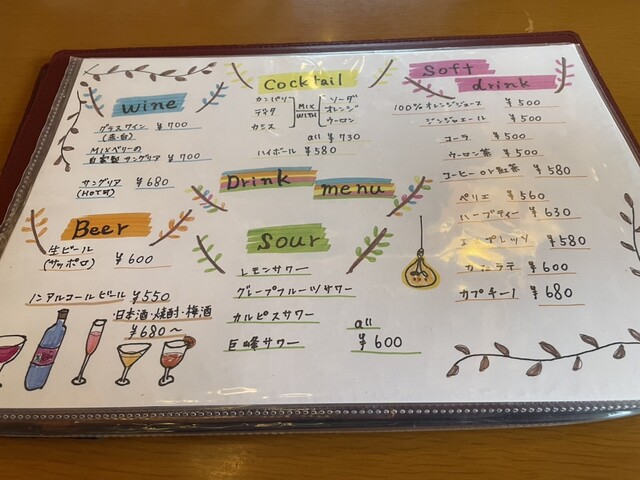 wine
グラスワイン ¥700
(赤・白)
MIXベリーの
自家製サングリア ¥700
サングリア ¥680
(HOT可)
Beer
生ビール
(サッポロ) ¥600
ノンアルコールビール ¥550
・日本酒・焼酎・梅酒
¥680～
Cocktail
カンパリ
カシス
MIX
WITH
ソーダ
オレンジ
ウーロン
all ¥730
ハイボール ¥580
Drink menu
Sour
レモンサワー
グレープフルーツサワー
カルピスサワー
巨峰サワー
all
¥600
Soft
drink
100%オレンジジュース ¥500
ジンジャエール ¥500
コーラ ¥500
ウーロン茶 ¥500
コーヒー or 紅茶 ¥580
ペリエ ¥560
ハーブティー ¥630
¥580
カフェラテ ¥600
カプチーノ ¥680